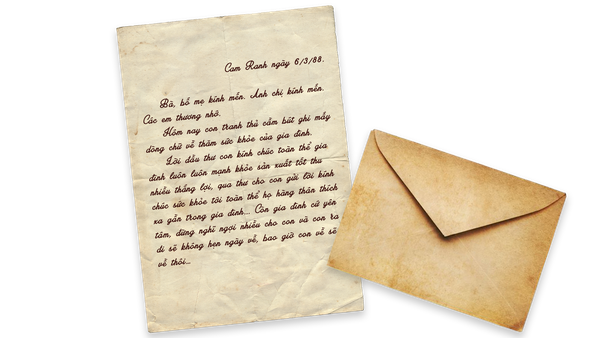 Cam Ranh ngày 6/3/88.
Bà, bố mẹ kính mến. Anh chị kính mến.
Các em thương nhớ.
Hôm nay con tranh thủ cầm bút ghi mấy
dòng chữ về thăm sức khỏe của gia đình.
Lời đầu thư con kính chúc toàn thể gia
đình luôn luôn mạnh khỏe sản xuất tốt thu
nhiều thắng lợi, qua thư cho con gửi lời kính
chúc sức khỏe tới toàn thể họ hàng thân thích
xa gần trong gia đình... Còn gia đình cứ yên
tâm, đừng nghĩ ngợi nhiều cho con và con ra
đi sẽ không hẹn ngày về, bao giờ con về sẽ
về thôi...